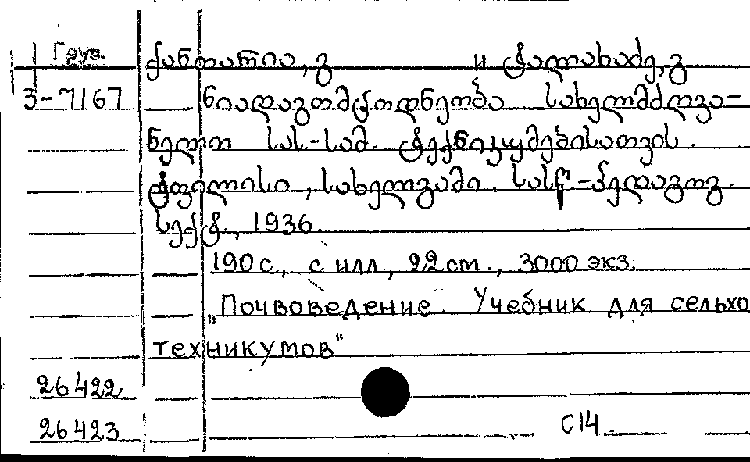 Груз. ქანთარია, გ и ტალახაძე, გ
3-7167 ნიადაგთმცოდნეობა სახელმძღვა-
ნელო სას.-სამ. ტექნიკუმებისათვის.
ტფილისი, სახელგამი. სასწ.-პედაგოგ.
სექტ., 1936
190 с., с илл, 22 cm., 3000 экз.
"Почвоведение. Учебник для сельхо
техникумов"
26422
26423 С14